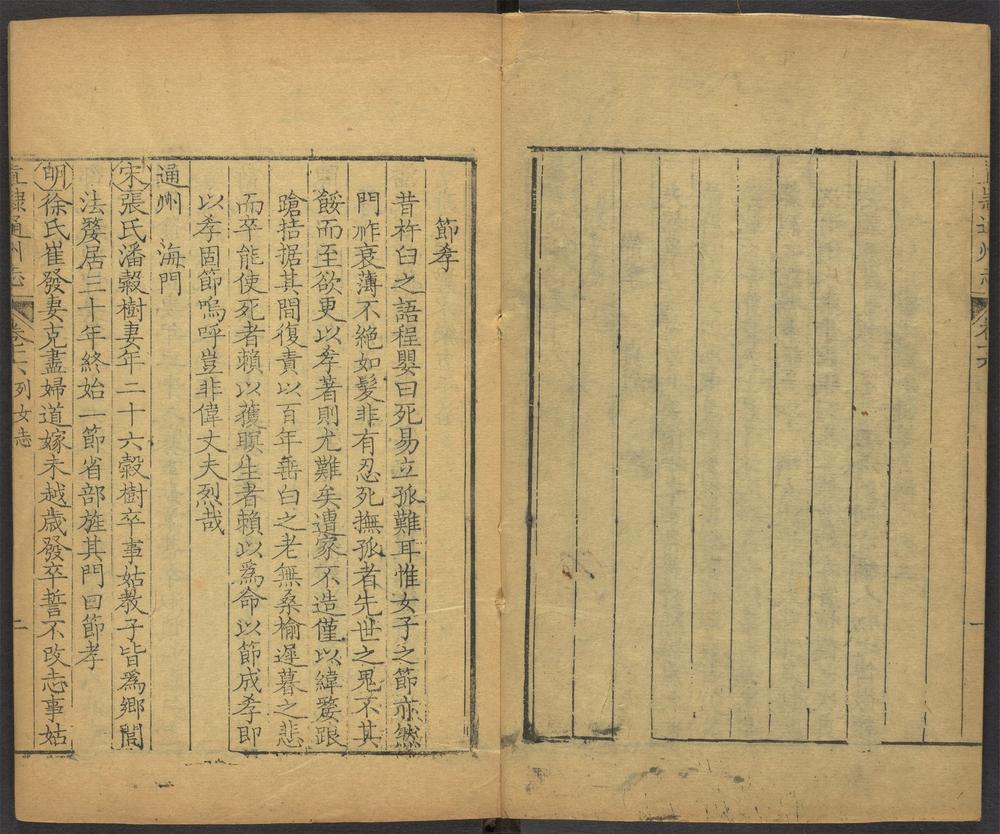 通州志
節孝
昔杵臼之語程嬰曰死易立孤難耳惟女子之節亦然
門祚衰薄不絶如髮非有忍死撫孤者先世之鬼不其
餒而至欲更以孝著則尤難矣遭家不造僅以緯嫠踉
蹌拮据其間復責以百年垂白之老無桑榆遲暮之悲
而卒能使死者賴以獲瞑生者賴以爲命以節成孝即
以孝固節嗚呼豈非偉丈夫烈哉
通州 海門
宋張氏潘榖樹妻年二十六榖樹卒事姑敎子皆爲鄉閭
法嫠居三十年終始一節省部旌其門曰節孝
明徐氏崔發妻克盡婦道嫁未越歲發卒誓不改志事姑
直隸通州志 卷二六列女志 二